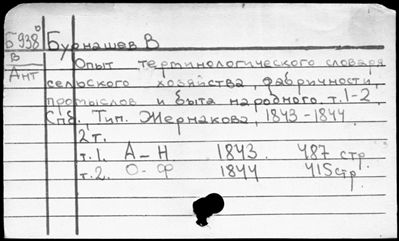 Б 938 Бурнашев В
В Опыт терминологического словаря
Ант сельского хозяйства, фабричности,
промыслов и быта народного. т.1-2.
Спб., Тип. Жернакова, 1843-1844.
2 т.
т.1. А-Н 1843. 487 стр.
т.2. О-Ф 1844 415 стр.